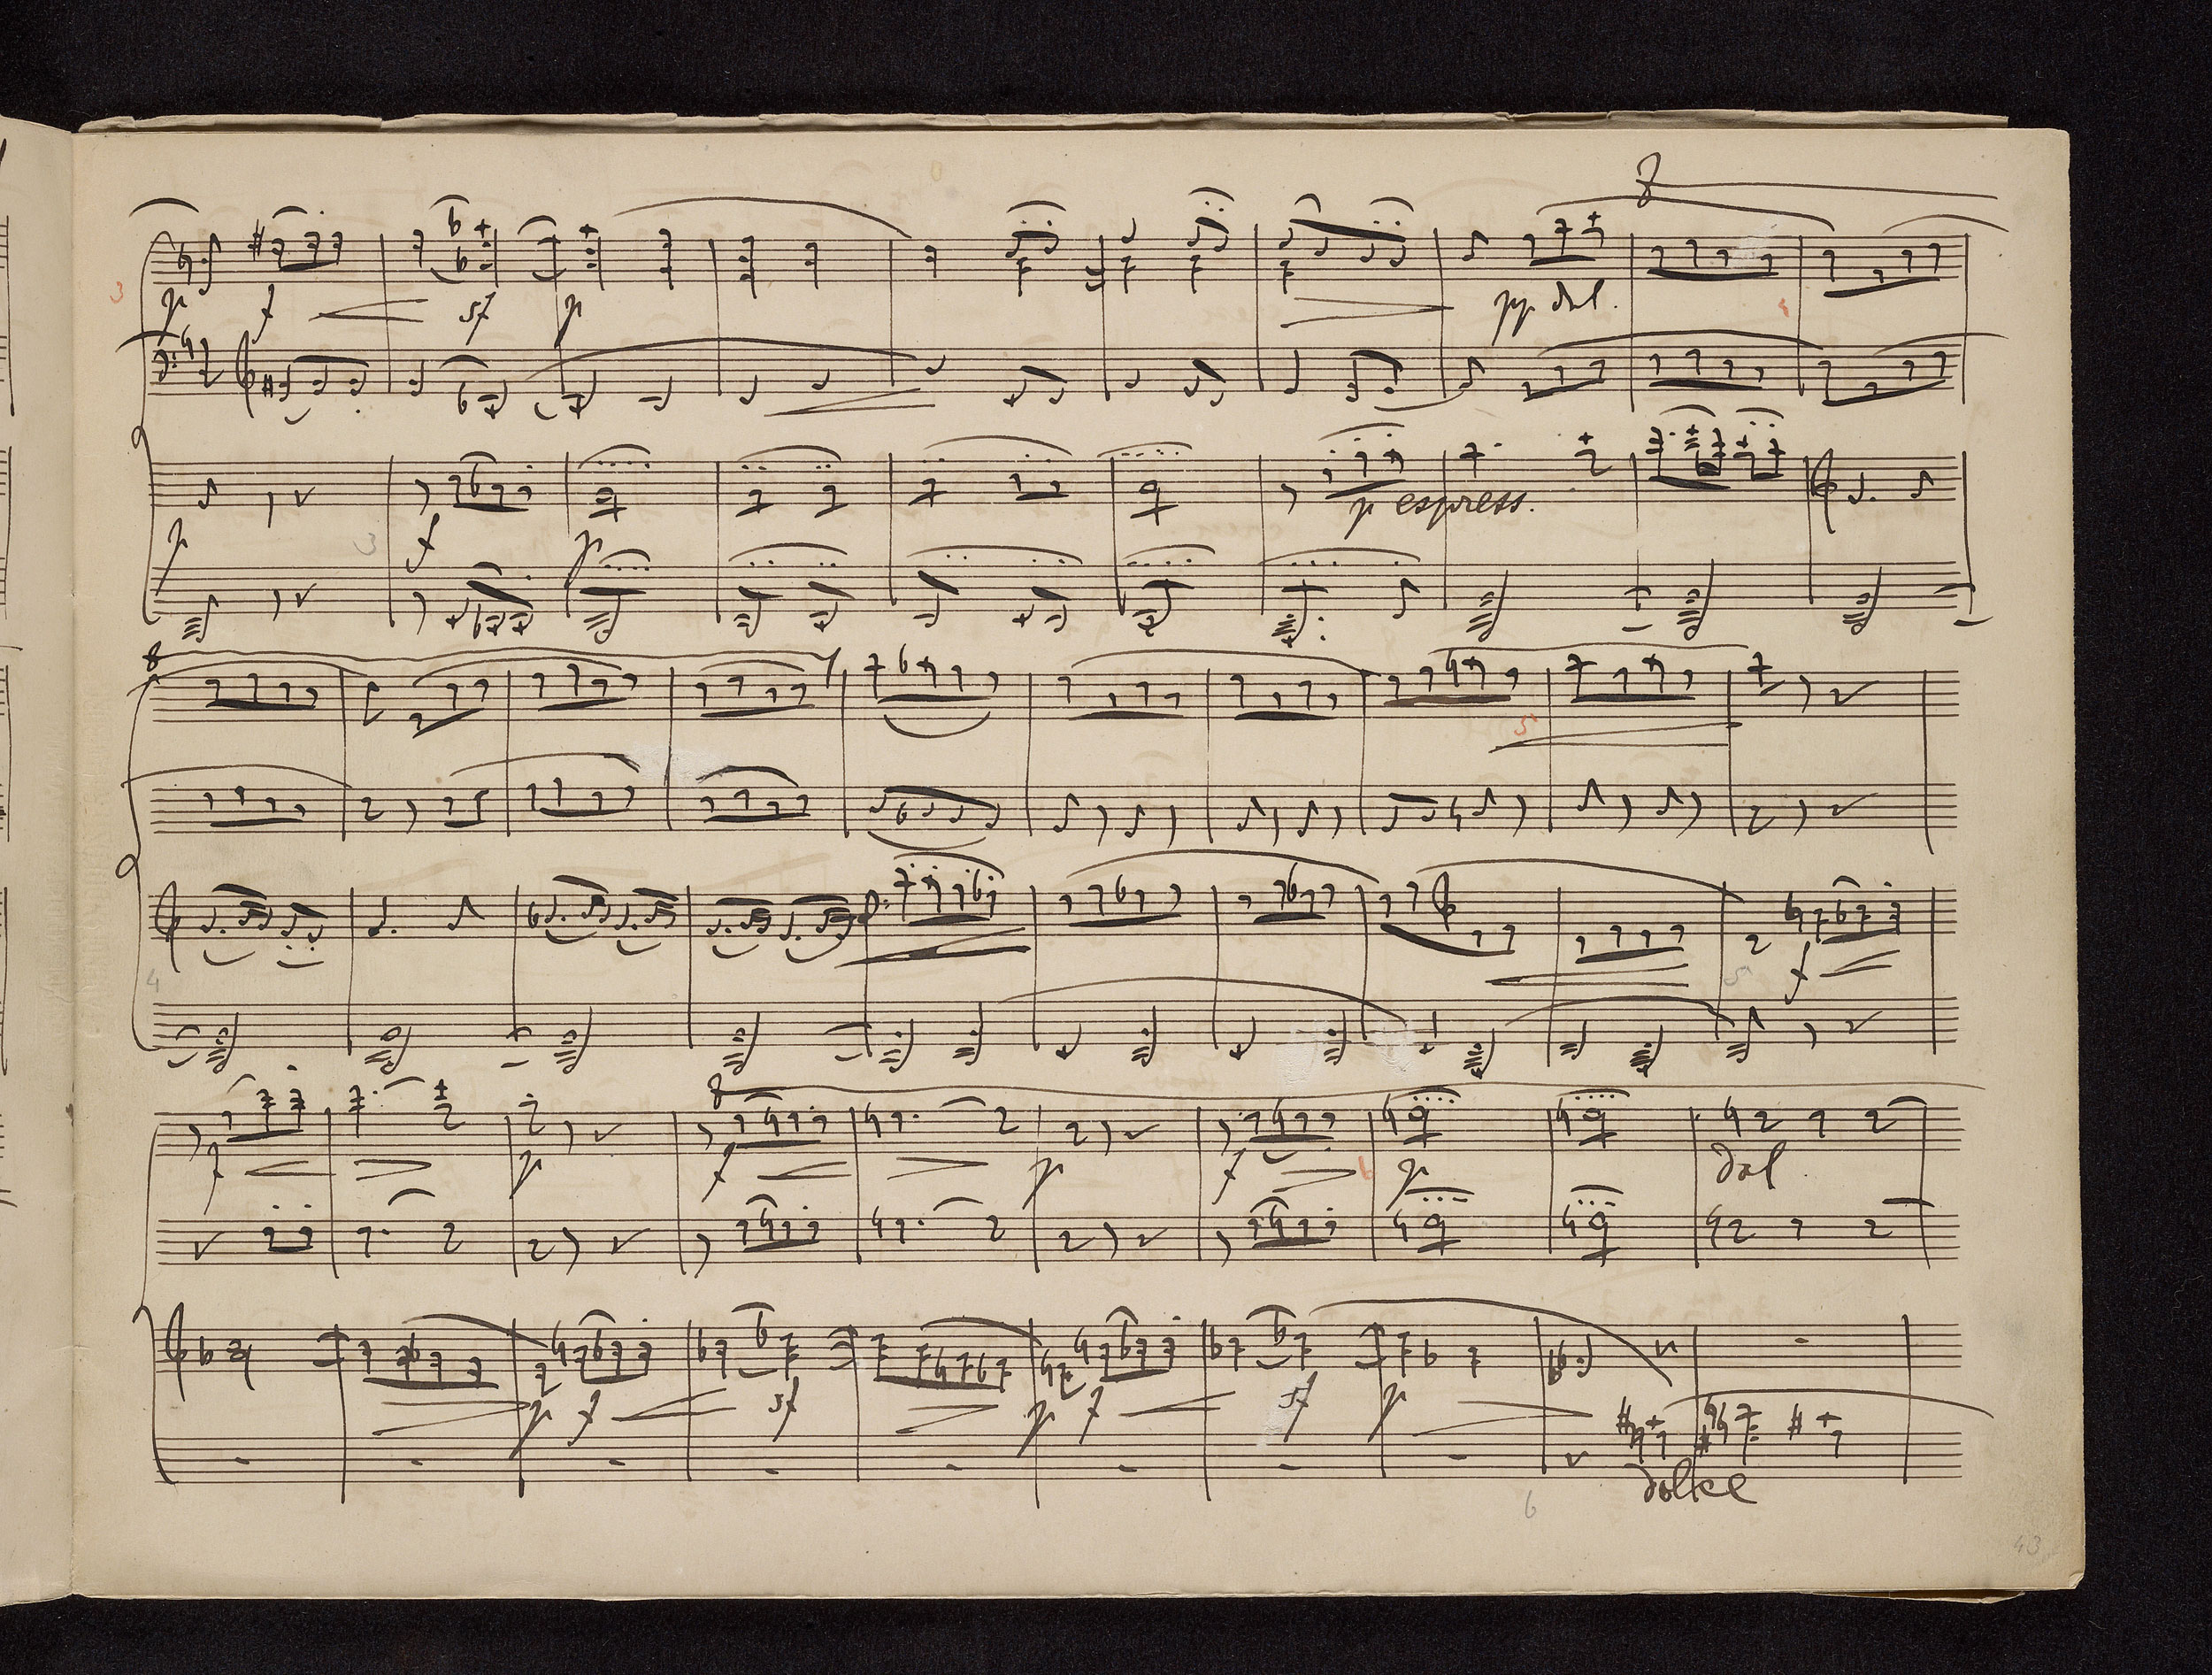 8
p f sf p pp dol.
3
4
p f p p espress.
3
8
5
f
4 5
8
f p f p f p dol.
6
p f sf p f sf p
dolce
6
43